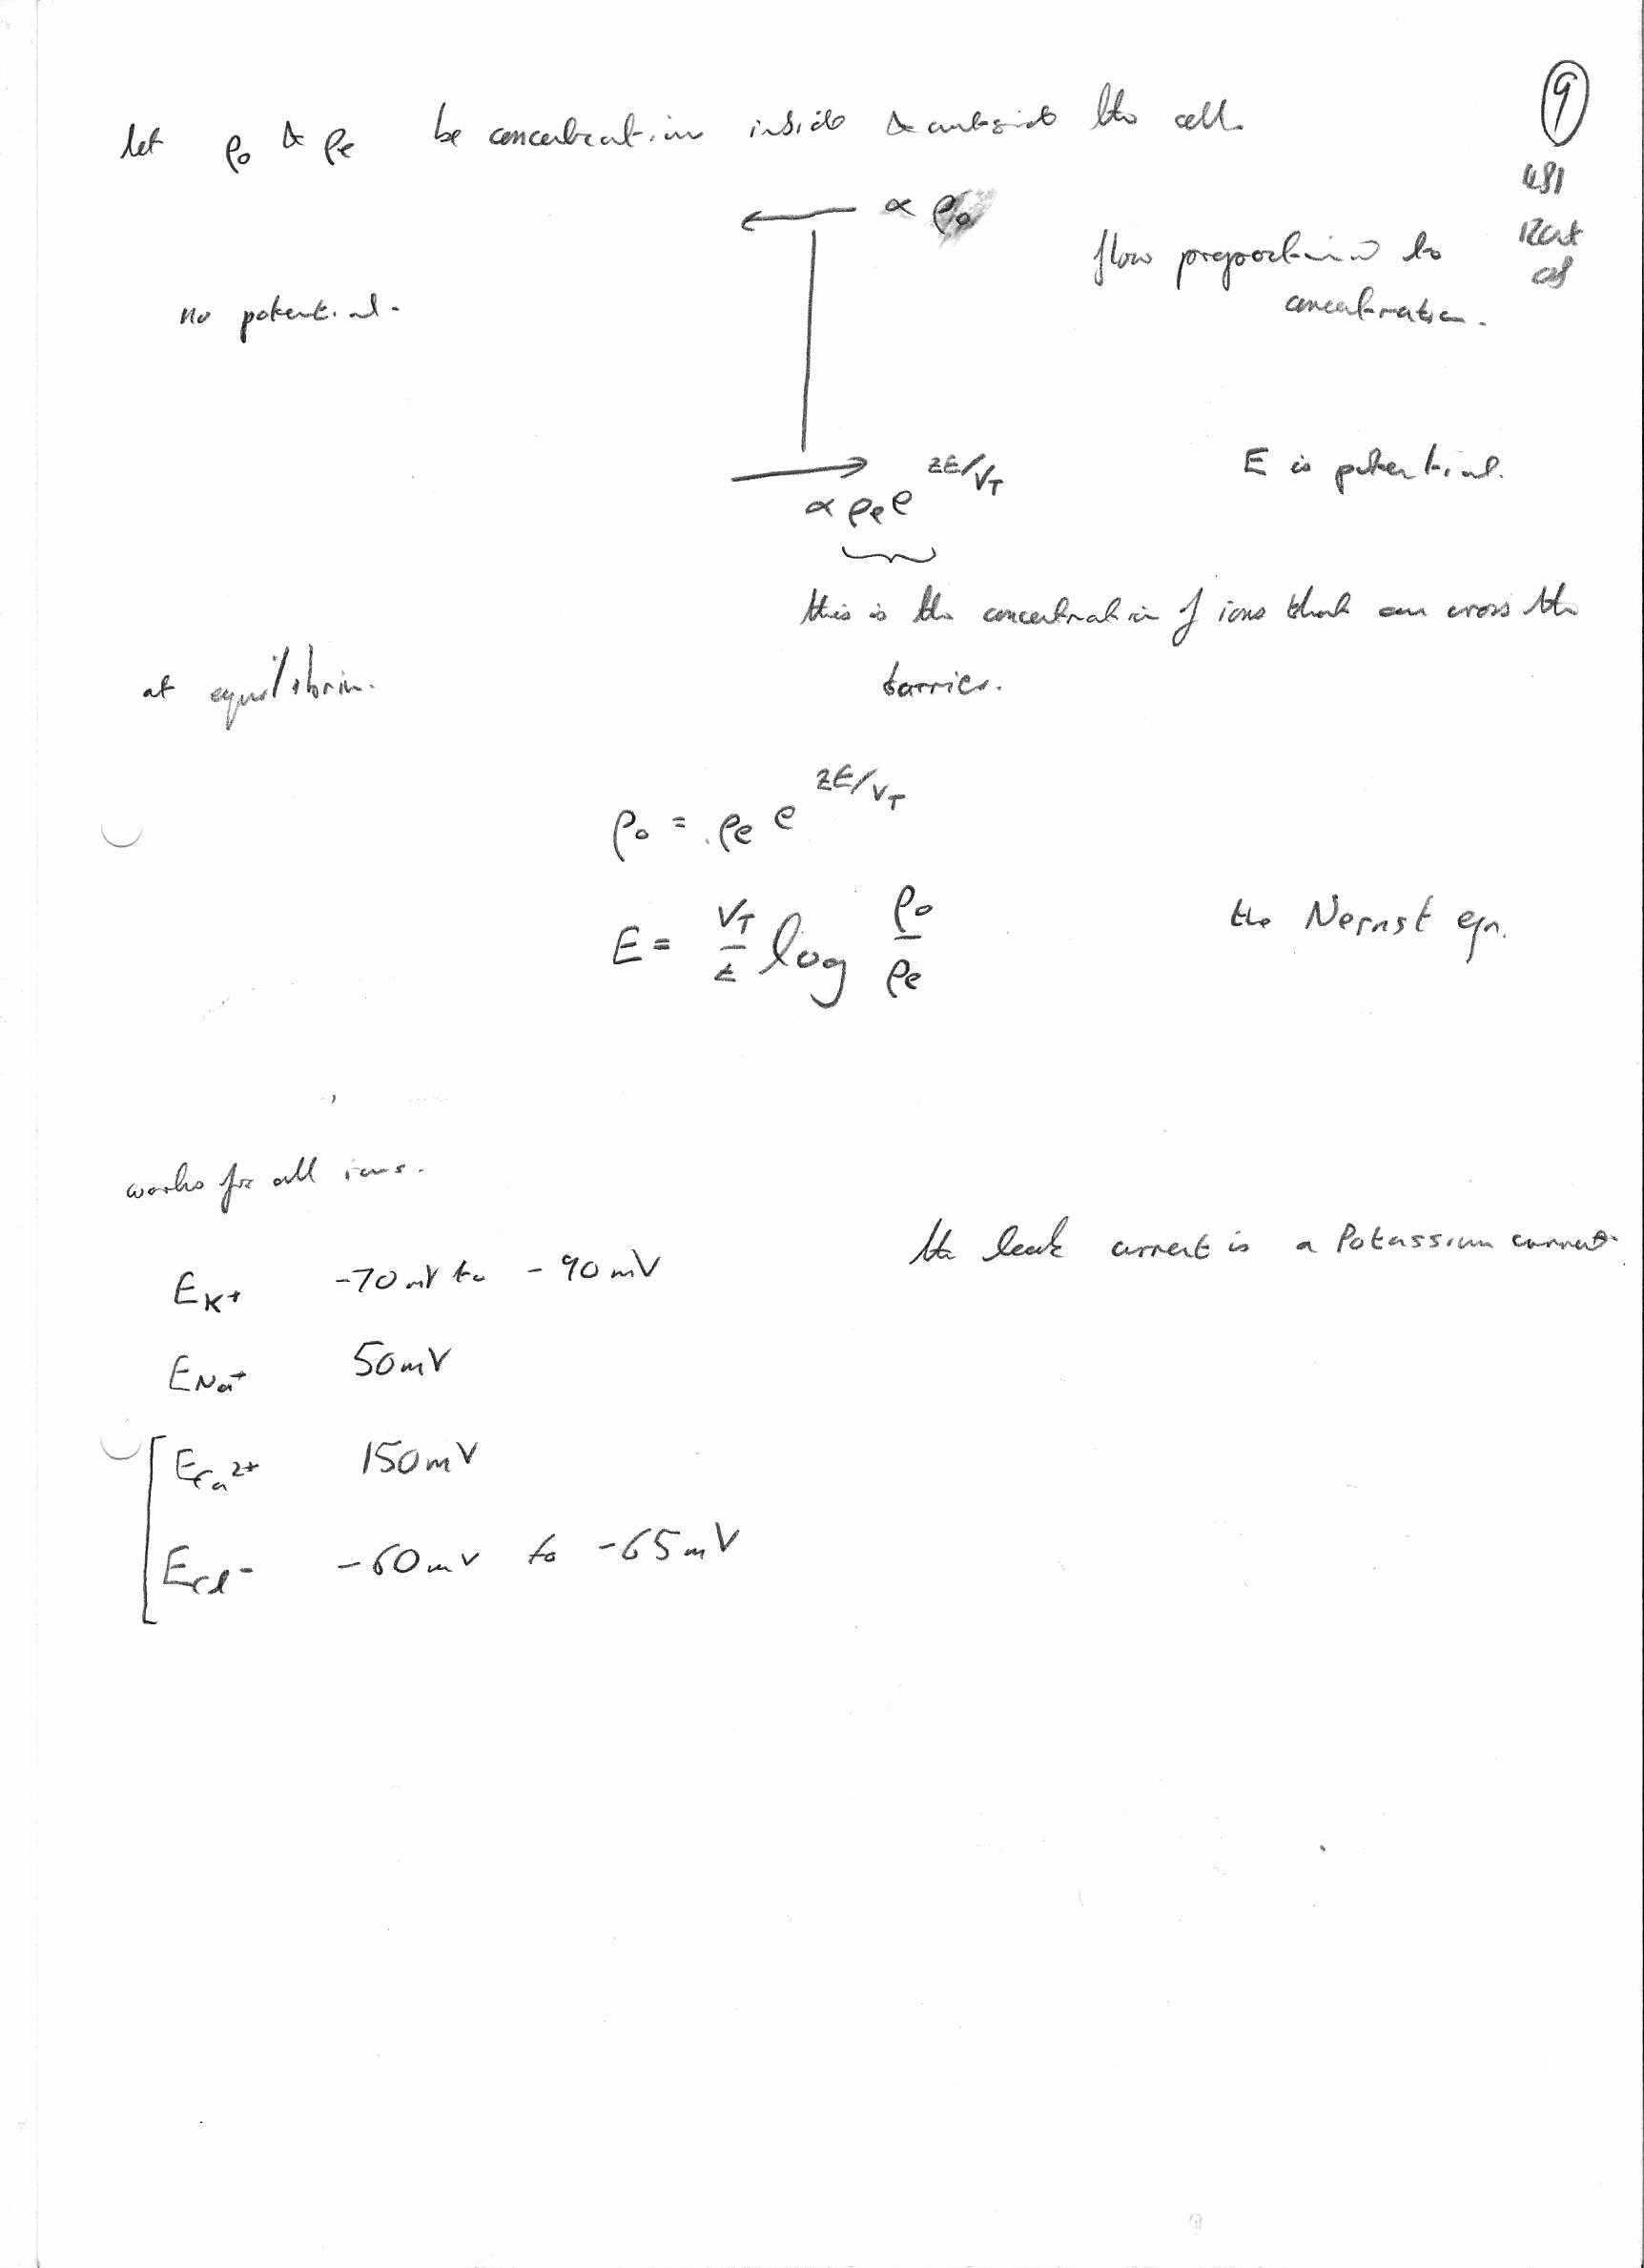 9
let ρo & ρe be concentration inside & outside the cell.
← ∝ ρo
flow proportional to
concentration.
no potential.
E is potential.
→ ∝ ρe e^{zE/V_T}
this is the concentration of ions that can cross the
barrier.
at equilibrium.
ρo = ρe e^{zE/V_T}
E = V_T/z log ρo/ρe
the Nernst eqn.
works for all ions.
the leak current is a Potassium current.
E_{K+} -70mV to -90mV
E_{Na+} 50mV
E_{Ca2+} 150mV
E_{Cl-} -60mV to -65mV